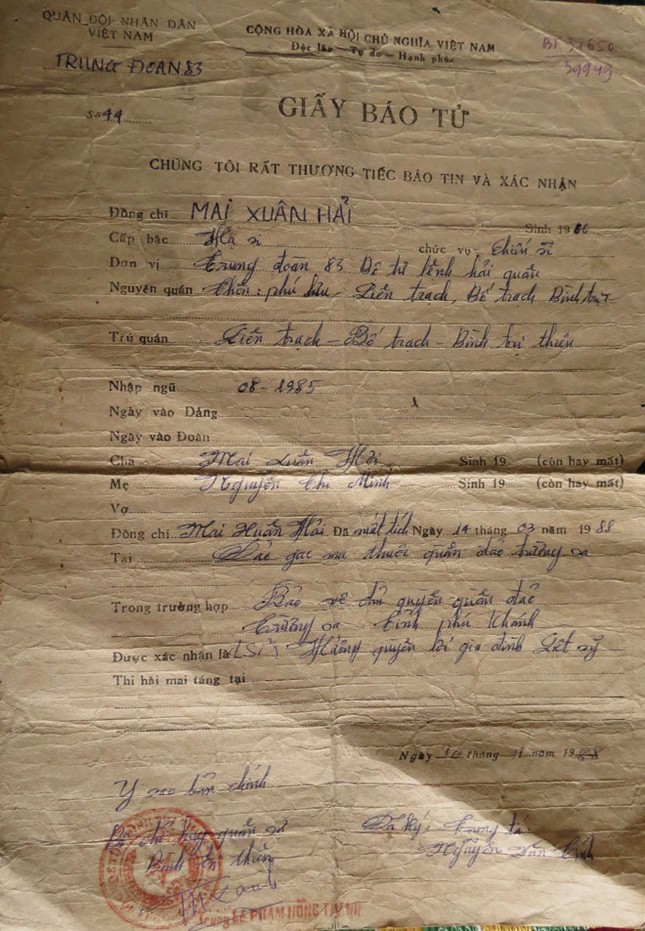 QUÂN ĐỘI NHÂN DÂN
VIỆT NAM
TRUNG ĐOAN 83
Số 44
CỘNG HÒA XÃ HỘI CHỦ NGHĨA VIỆT NAM
Độc lập — Tự do — Hạnh phúc
39949
GIẤY BÁO TỬ
CHÚNG TÔI RẤT THƯƠNG TIẾC BÁO TIN VÀ XÁC NHẬN
Đồng chí MAI XUÂN HẢI Sinh 19
Cấp bậc Hạ sĩ chức vụ Chiến sĩ
Đơn vị Trung đoàn 83 Bộ tư lệnh hải quân
Nguyên quán Thôn: phú hữu - Liên trạch, Bố trạch Bình trị
Trú quán Liên trạch - Bố trạch - Bình trị thiên
Nhập ngũ 08-1985
Ngày vào Đảng
Ngày vào Đoàn
Cha Mai Xuân Sinh 19 (còn hay mất)
Mẹ Nguyễn thị Minh Sinh 19 (còn hay mất)
Vợ
Đồng chí Mai Xuân Hải Đã mất tích Ngày 14 tháng 03 năm 1988
Tại Đảo gạc ma thuộc quần đảo trường sa
Trong trường hợp Bảo vệ chủ quyền quần đảo
Trường sa tỉnh phú Khánh
Được xác nhận là Hưởng quyền lợi gia đình Liệt sỹ
Thi hài mai táng tại
Ngày 10 tháng 11 năm 1988
Y sao bản chính
Bộ chỉ huy quân sự
Bình trị thiên
Đã ký: Trung tá
Nguyễn Văn
PHẠM HỒNG